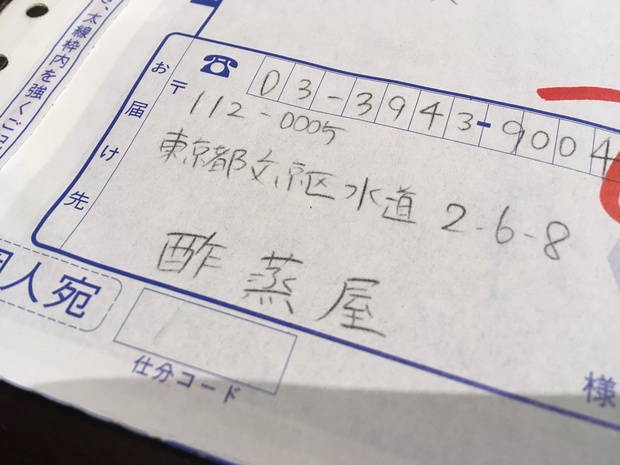 、太線枠内を強くご記
お届け先
☎ 03-3943-9004
〒112-0005
東京都文京区水道2-6-8
酢蒸屋
様
個人宛
仕分コード